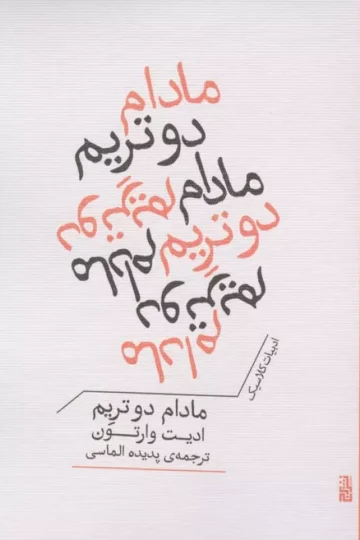 مادام
دوتریم
مادام
دوتریم
دوتریم
مادام
دوتریم
مادام
ادبیات کلاسیک
مادام دوتریم
ادیت وارتون
ترجمه‌ی پدیده الماسی